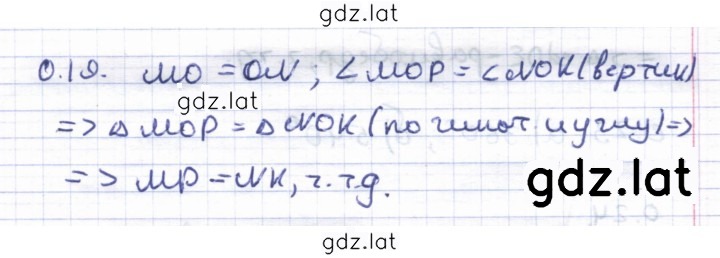 gdz.lat
0.19. MO = ON; ∠MOP = ∠NOK (вертик)
gdz.lat
=> △MOP = △NOK (по гипот. и углу) =>
=> MP = NK, ч.т.д.
gdz.lat
gdz.lat